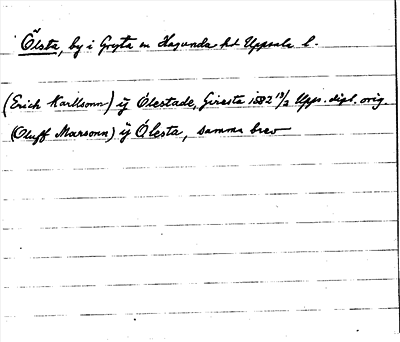 Ölsta, by i Gryta sn Hagunda hd Uppsala l.
(Erich Karllsonn) ij Ölestade, Giresta 1582 13/2 Upps. dipl. orig.
(Oluff Marsonn) ij Ólesta, samma brev